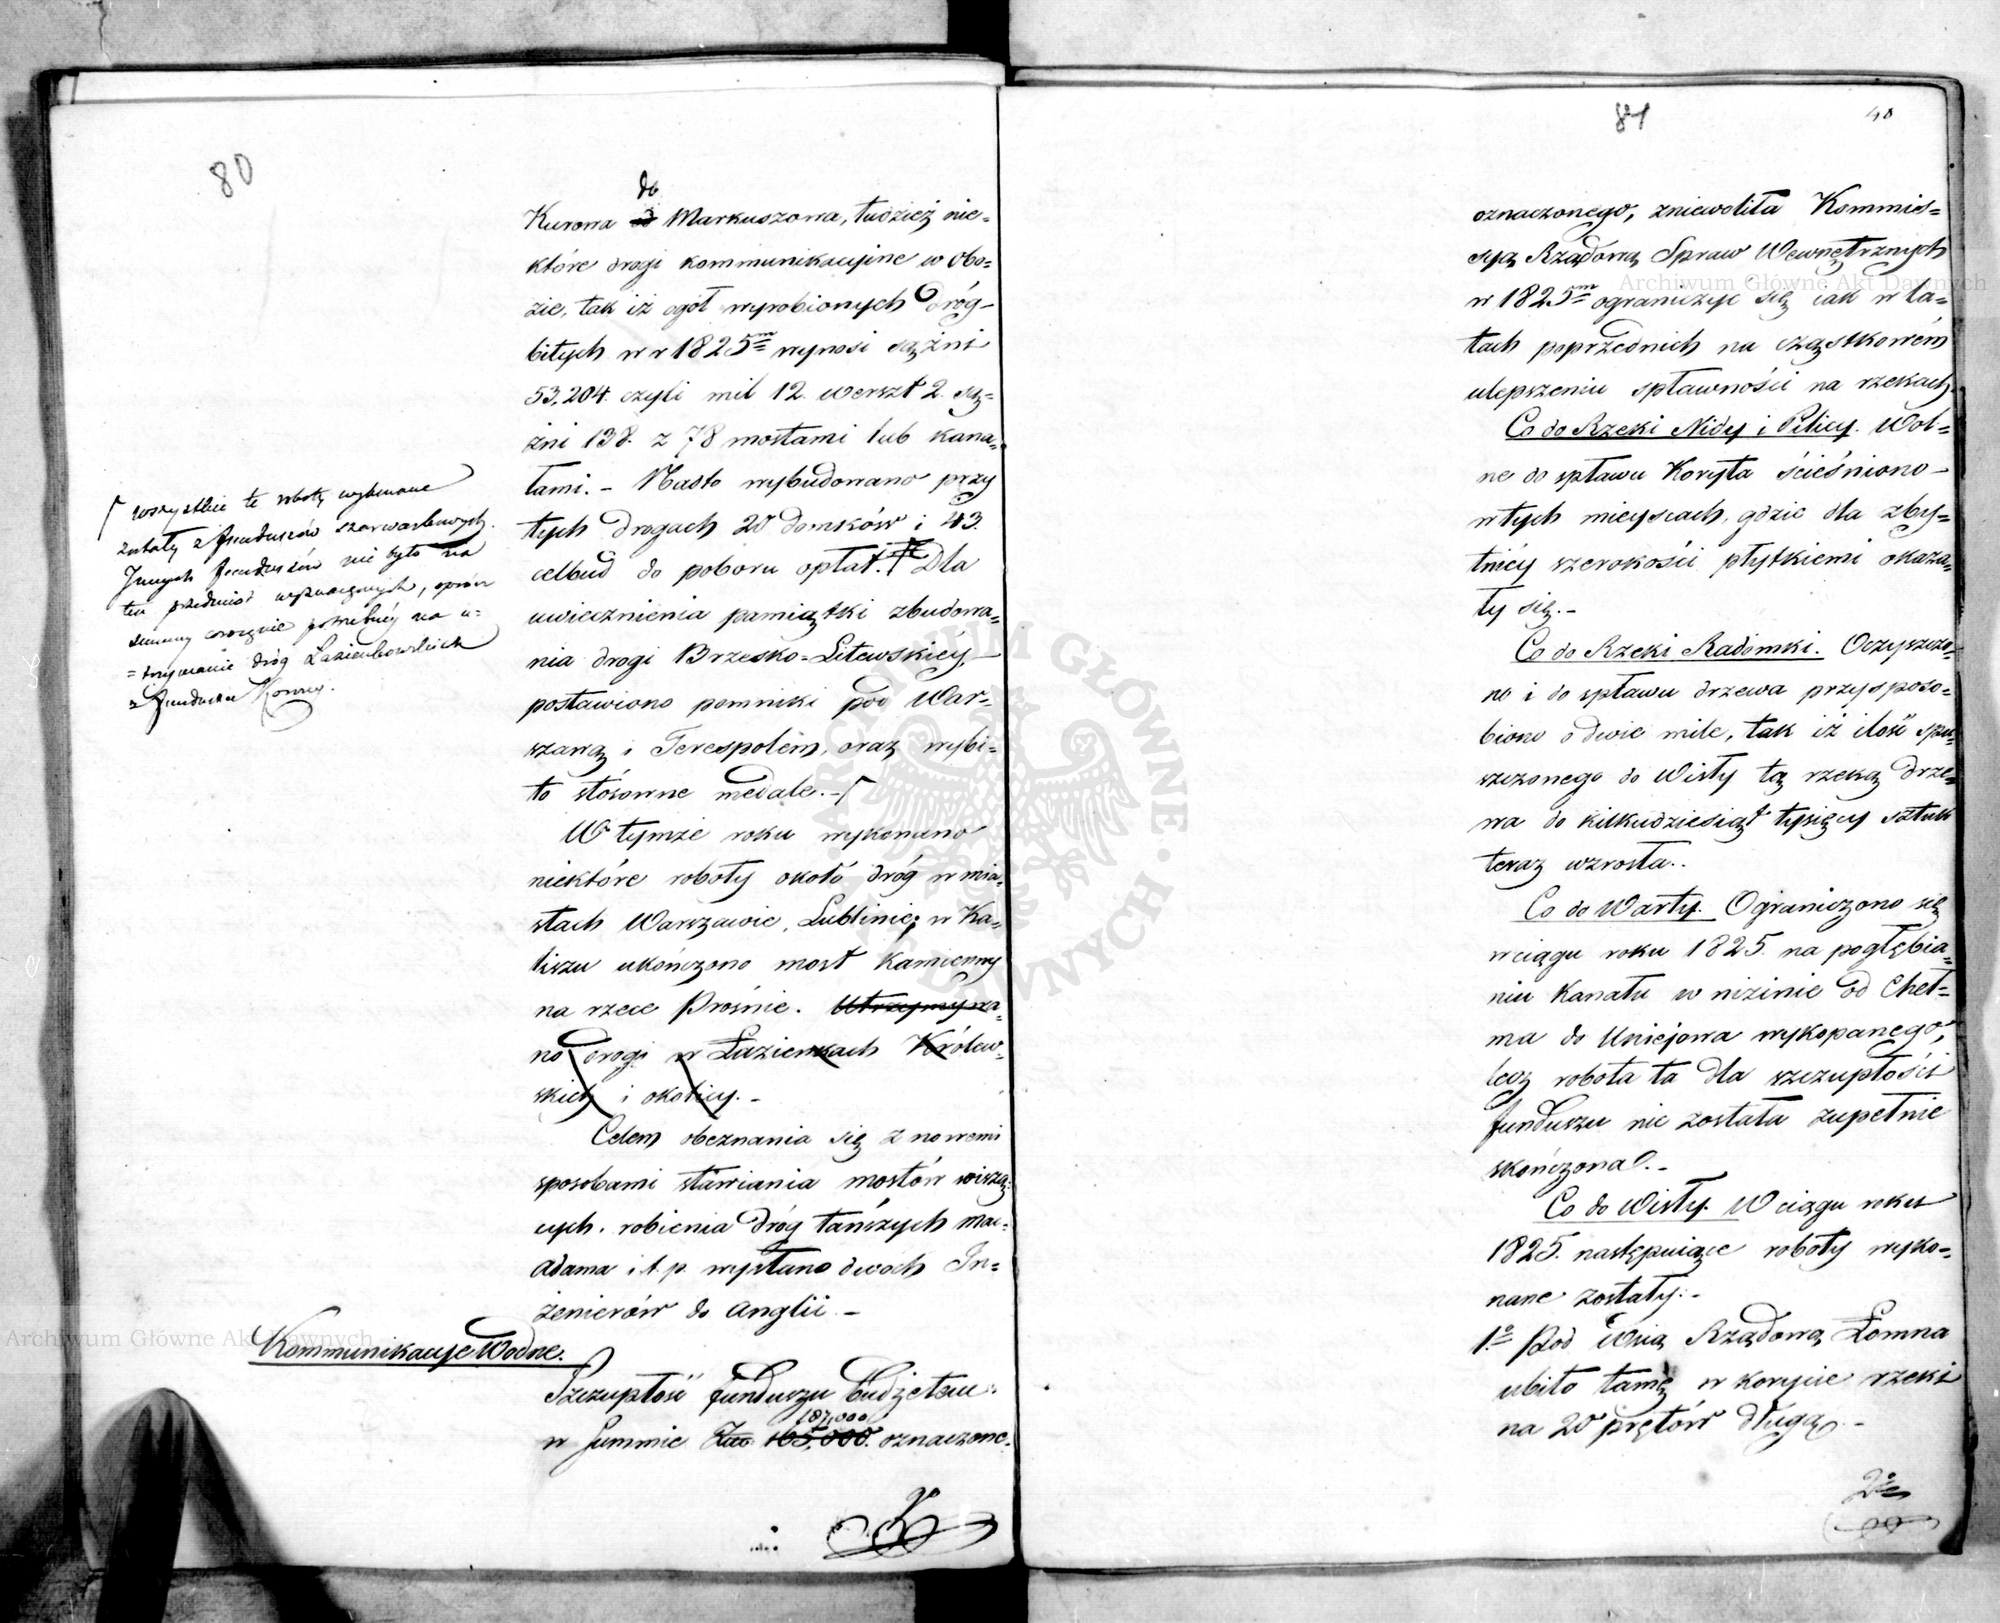 80
do
Kurowa Markuszowa, tudzież nie=
które drogi kommunikacyine w obo=
zie, tak iż ogół wyrobionych dróg
bitych w r 1825m wynosi sążni
53,204. czyli mil 12. werszt 2. są=
żni 138. z 78 mostami lub kana=
łami. – Nadto wybudowano przy
tych drogach 20 domków i 43.
celbud do poboru opłat. Dla
uwiecznienia pamiątki zbudowa=
nia drogi Brzesko=Litewskiéy
postawiono pomniki pod War=
szawą i Terespolem, oraz wybi=
to stósowne medale. –
W tymże roku wykonano
niektóre roboty około dróg w mia=
stach Warszawie, Lublinie; w Ka=
liszu ukończono most kamienny
na rzece Prośnie. Utrzymywa=
no drogi w Łazienkach Królew=
skich i okolicy. –
Celem obeznania się z nowemi
sposobami stawiania mostów wiszą=
cych, robienia dróg tańszych Mac=
adama i t. p. wysłano dwóch In=
żenierów do Anglii. –
wszystkie te roboty wykonane
zostały z funduszów szarwarkowych.
Innych funduszów nie było na
ten przedmiot wyznaczonych, oprócz
summy corocznie potrzebnéy na u=
=trzymanie dróg Łazienkowskich
z funduszu
Kommunikacye Wodne.
Szczupłość funduszu Budżetem
187,000
w Summie 165,000. oznaczone=
81
40
oznaczonego, zniewoliła Kommis=
syą Rządową Spraw Wewnętrznych
w 1825m ograniczyć się iak w la=
tach poprzednich na cząstkowém
ulepszeniu spławności na rzekach.
Co do Rzeki Nidy i Pilicy. Wol=
ne do spławu Koryta ścieśniono
w tych mieyscach, gdzie dla zby=
tniéy szerokości płytkiemi okaza=
ły się. –
Co do Rzeki Radomki. Oczyszczo=
no i do spławu drzewa przysposo=
biono o dwie mile, tak iż ilość spu=
szczonego do Wisły tą rzeką drze=
wa do kilkudziesiąt tysięcy sztuk
teraz wzrosła..
Co do Warty. Ograniczono się
w ciągu roku 1825. na pogłębia=
niu Kanału w nizinie od Cheł=
ma do Uniejowa wykopanego,
lecz robota ta dla szczupłości
funduszu nie została zupełnie
skończona. –
Co do Wisły. W ciągu roku
1825. następuiące roboty wyko=
nane zostały. –
1.º Pod Wsią Rządową Łomna
ubito tamę w korycie rzeki
na 20 prętów długą. –
2º
Archiwum Główne Akt Dawnych
Archiwum Główne Akt Dawnych
ARCHIWUM GŁÓWNE AKT DAWNYCH